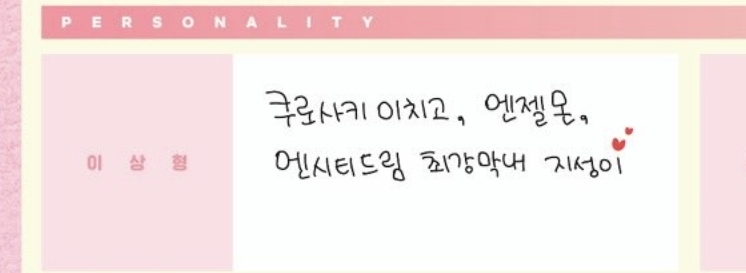 PERSONALITY
이상형
쿠로사키 이치고, 엔젤몬,
엔시티드림 최강막내 지성이